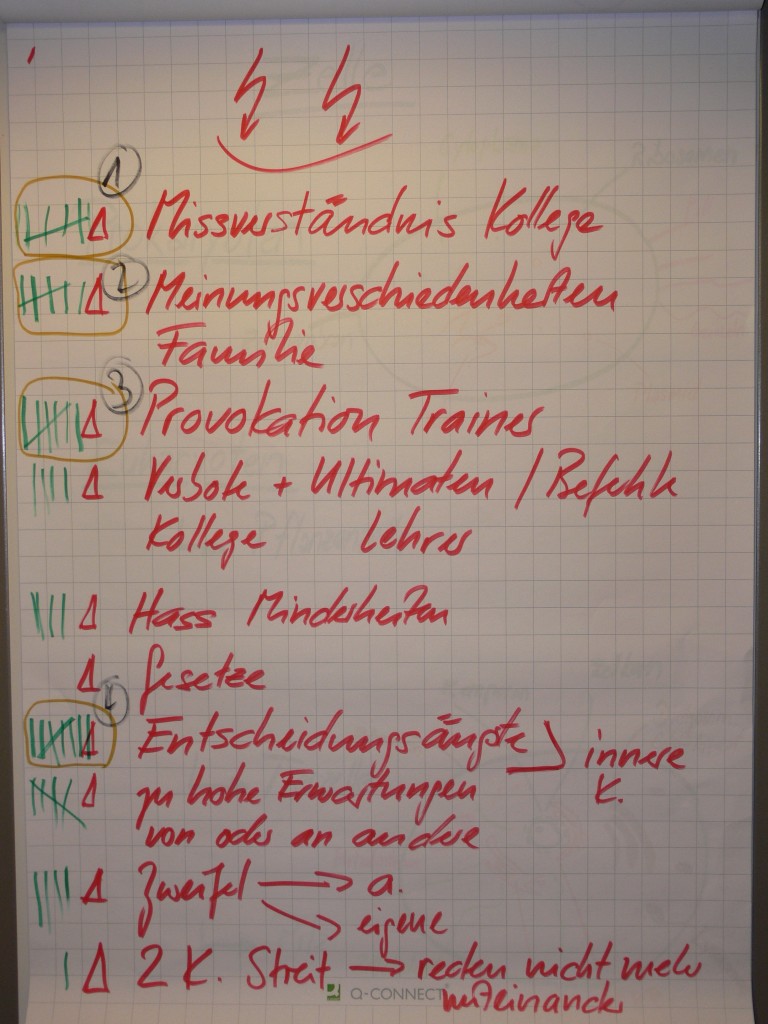 1
Missverständnis Kollege
2
Meinungsverschiedenheiten
Familie
3
Provokation Trainer
Verbote + Ultimaten / Befehle
Kollege Lehrer
Hass Minderheiten
Gesetze
4
Entscheidungsängste
innere
K.
zu hohe Erwartungen
von oder an andere
Zweifel → a.
→ eigene
2 K. Streit → reden nicht mehr
miteinander
Q-CONNECT